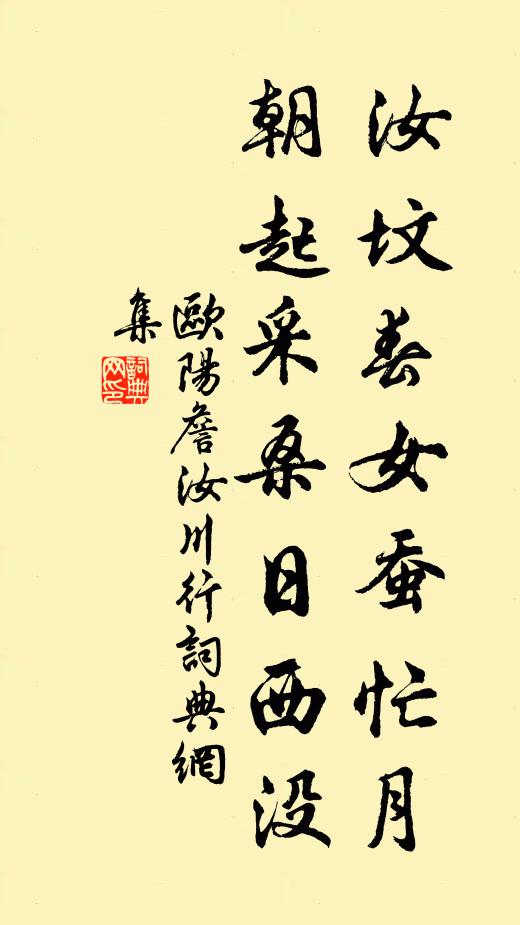 汝坟春女蚕忙月
朝起采桑日西没
歐陽詹汝川行詞典網
集
詞典
网印